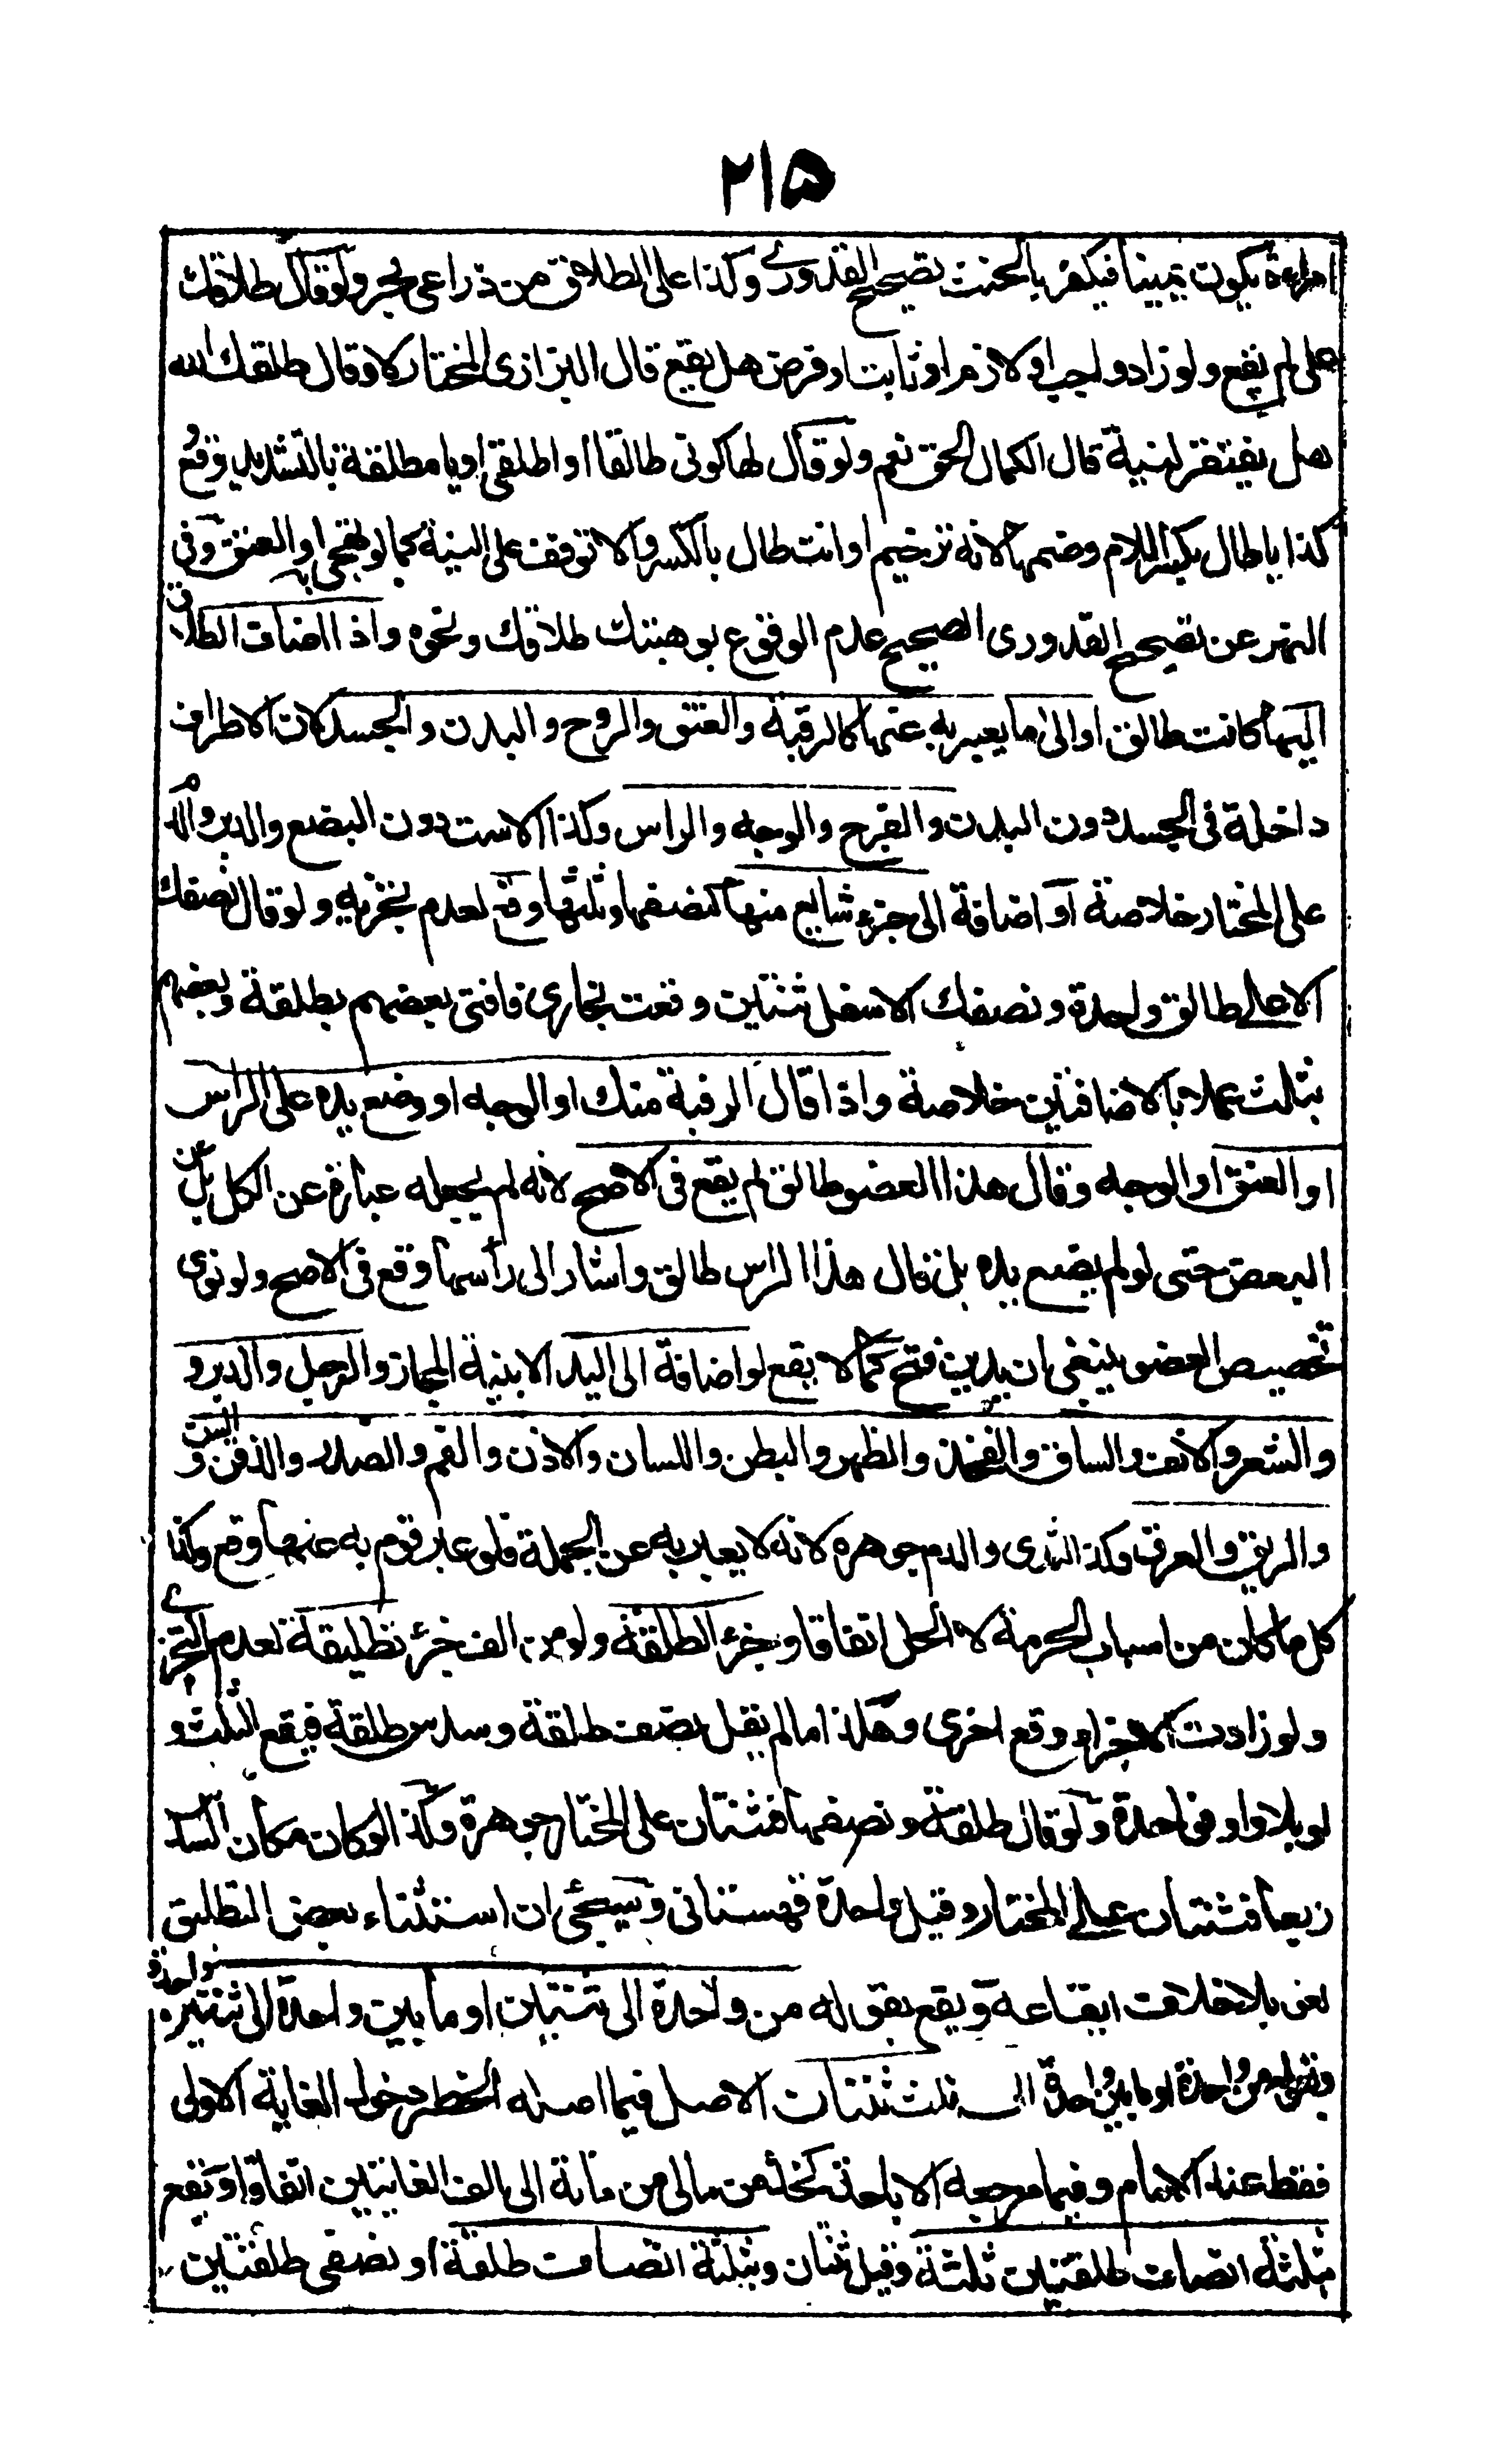 ٢١٥
امراءة يكون يمينا فيكفر بالحنث تصحيح القدوري وكذا على الطلاق من ذراعي بحر ولو قال طلاقك
على لم يقع ولو زاد واجب او لازم او ثابت او فرض هل يقع قال البزازى المختار لا وقال طلقك الله
هل يفتقر لنية قال الكمال الحق نعم ولو قال لها كونى طالقا او اطلقى او يا مطلقة بالتشديد وقع
كذا يا طال بكسر اللام وضمها لانه ترخيم او انت طال بالكسر والا توقف على النية كما لو تهجى به او العتق وفى
النهر عن تصحيح القدورى الصحيح عدم الوقوع بوهبتك طلاقك ونحوه واذا اضاف الطلاق
اليها كانت طالق او الى ما يعبر به عنها كالرقبة والعنق والروح والبدن والجسد لان الاطراف
داخلة فى الجسد دون البدن والفرج والوجه والراس وكذا الاست دون البضع والدبر والدم
على المختار خلاصة او اضافة الى جزء شايع منها كنصفها وثلثها وقع لعدم تجزيه ولو قال نصفك
الاعلى طالق واحدة ونصفك الاسفل ثنتين وقعت ببخارى فافتى بعضهم بطلقة وبعضهم
بثلث عملا بالاضافتين خلاصة واذا قال الرقبة منك او الوجه او وضع يده على الراس
او العنق او الوجه وقال هذا العضو طالق لم يقع فى الاصح لانه لم يجعله عبارة عن الكل بل عن
البعض حتى لو لم يضع يده بل قال هذا الراس طالق واشار الى رأسها وقع فى الاصح ولو نوى
تخصيص العضو ينبغى ان يدين فتح كما لا يقع لو اضافة الى اليد الا بنية المجاز والرجل والدبر و
والشعر والانف والساق والفخذ والظهر والبطن واللسان والاذن والفم والصدر والذقن والسن و
والريق والعرق وكذا الثدى والدم جوهره لانه لا يعبر به عن الجملة فلو عبر قوم به عنها وقع وكذا
كل ما كان من اسباب الحرمة لا الحل اتفاقا وجزء الطلقة ولو من الف جزء تطليقة لعدم التجزي
ولو زادت الاجزاء وقع اخرى وهكذا مالم يقل نصف طلقة وسدس طلقة فيقع الثلث و
لو بلا واو فواحدة ولو قال طلقة ونصفها فثنتان على المختار جوهرة وكذا لو كان مكان السد
ربعا فثنتان على المختار وقيل واحدة قهستانى وسيجئ ان استثناء بعض التطليق
لغو بلا خلاف ايقاعه ويقع بقوله من واحدة الى ثنتين او ما بين واحدة الى ثنتين واحدة
وبقوله من واحدة او ما بين واحدة الى ثلث ثنتان الاصل فيما اصله الحظر دخول الغاية الاولى
فقط عند الامام وفيما مرجعه الاباحة كخذ من مالى من مائة الى الف الغايتين اتفاقا ويقع
بثلثه انصاف طلقتين ثلثة وقيل ثنتان وبثلثة انصاف طلقة او نصفى طلقتين